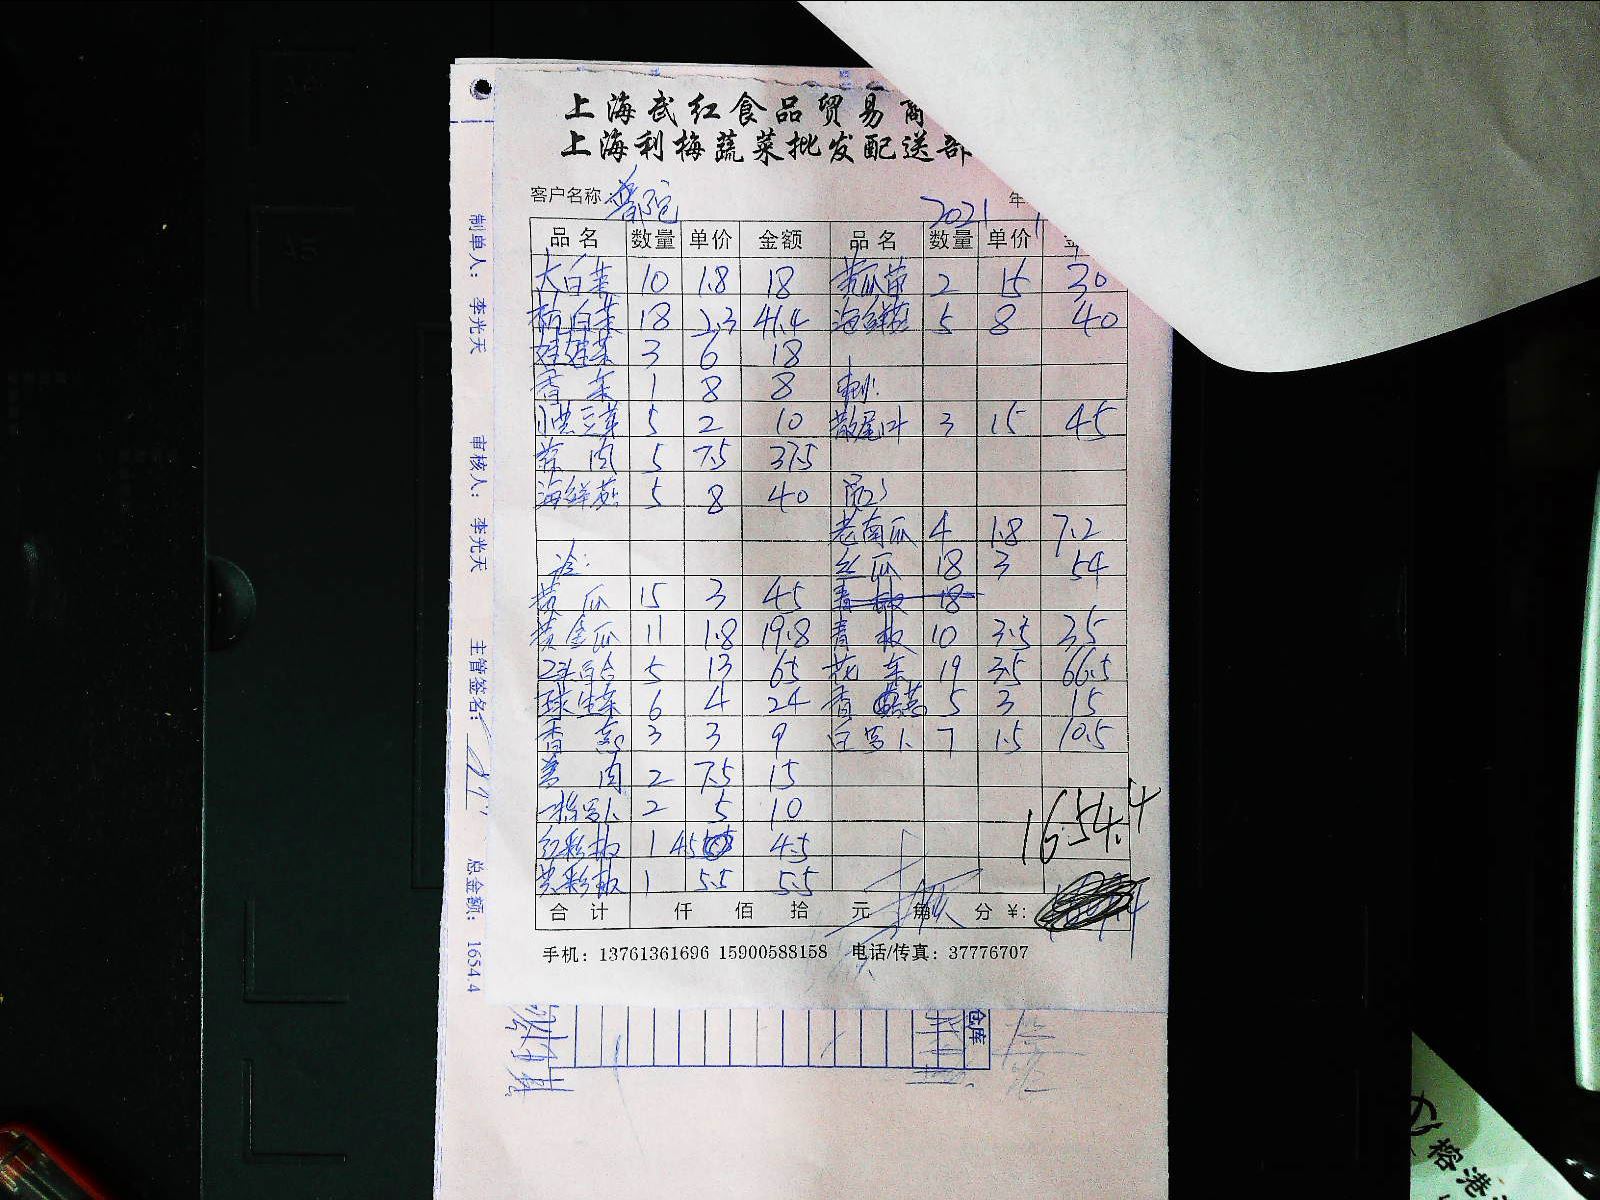 上海武红食品贸易商
上海利梅蔬菜批发配送部
客户名称： 普陀 2021 年
品名 数量 单价 金额 品名 数量 单价
大白菜 10 1.8 18 苦瓜苗 2 15 30
杭白菜 18 2.3 41.4 海鲜菇 5 8 40
娃娃菜 3 6 18
香菜 1 8 8
小黄豆芽 5 2 10 散尾叶 3 15 45
5 7.5 37.5
海鲜菇 5 8 40
老南瓜 4 1.8 7.2
冷: 丝瓜 18 3 54
黄瓜 15 3 45 青椒 18
黄金瓜 11 1.8 19.8 青椒 10 3.5 35
5 13 65 花菜 19 3.5 66.5
球生菜 6 4 24 5 3 15
香葱 3 3 9 白萝卜 7 1.5 10.5
2 7.5 15
萝卜 2 5 10
红彩椒 1 4.5 4.5
黄彩椒 1 5.5 5.5
1654.4
合计 仟 佰 拾 元 角 分 ¥:
手机：13761361696 15900588158 电话/传真：37776707
制单人： 李光天 审核人： 李光天 主管签名： 总金额： 1654.4
仓库
榕港